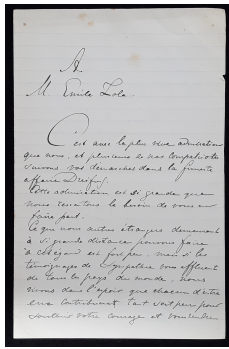 A
M. Emile Zola.
C'est avec la plus vive admiration
que nous, et plusieurs de nos compatriotes
suivons vos démarches dans la funeste
affaire Dreyfus.
Cette admiration est si grande que
nous ressentons le besoin de vous en
faire part.
Ce que nous autres étrangers demeurant
à si grande distance pouvons faire
à cet égard est fort peu. mais si les
témoignages de sympathie vous affluent
de tous les pays du monde, nous
vivons dans l'espoir que chacun d'entre
eux contribuera tant soit peu pour
soutenir votre courage et